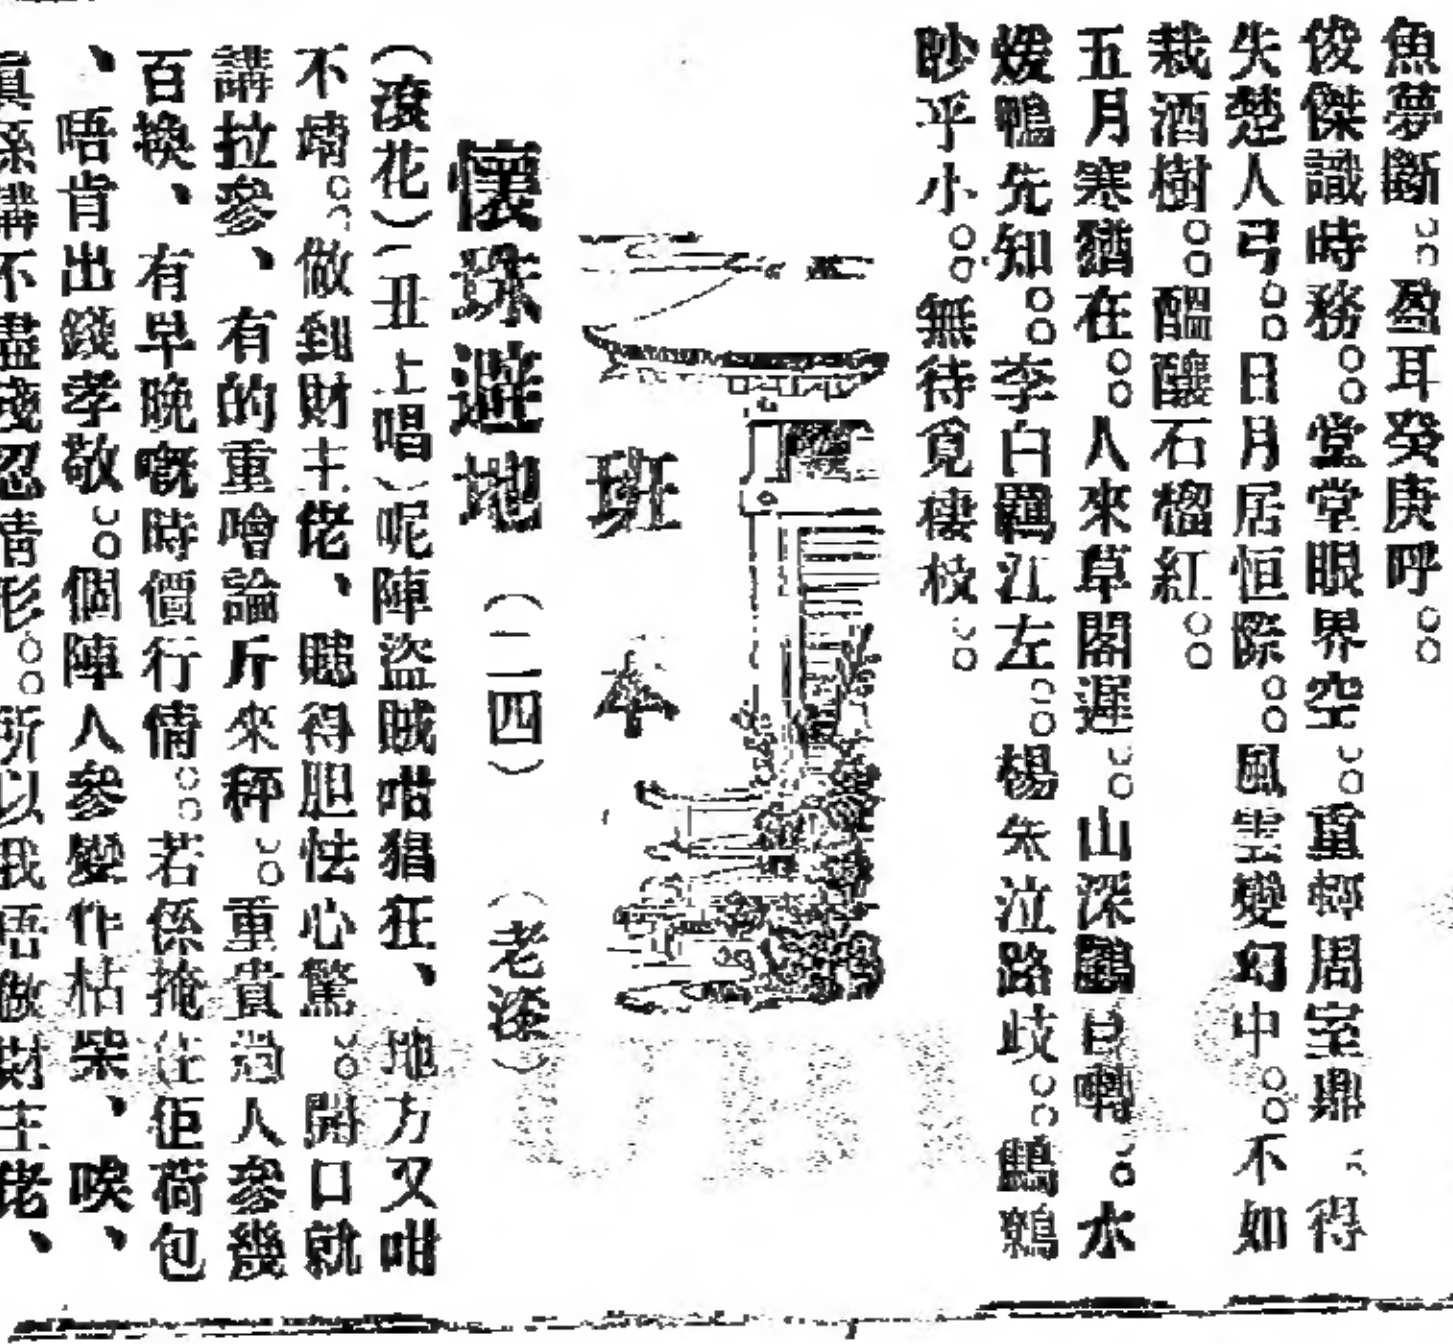 魚夢斷。盈耳癸庚呼。
俊傑識時務。堂堂眼界空。重輕周室鼎、得
失楚人弓。日月居恒際。風雲變幻中。不如
栽酒樹。醞釀石榴紅。
五月寒猶在。人來草閣遲。山深鸝白囀。水
煖鴨先知。李白羈江左。楊朱泣路歧。鷦鷯
眇乎小。無待覓棲枝。
班本
懷珠避地（二四）（老漆）
（滾花）（丑上唱）呢陣盜賊咁猖狂、地方又咁
不靖。做到財主佬、聽得胆怯心驚。開口就
講拉參、有的重噲論斤來秤。重貴過人參幾
百換、有早晚嘅時價行情。若係掩住佢荷包
、唔肯出錢孝敬。個陣人參變作枯柴、唉、
真係講不盡殘忍情形。所以我唔做財主佬、